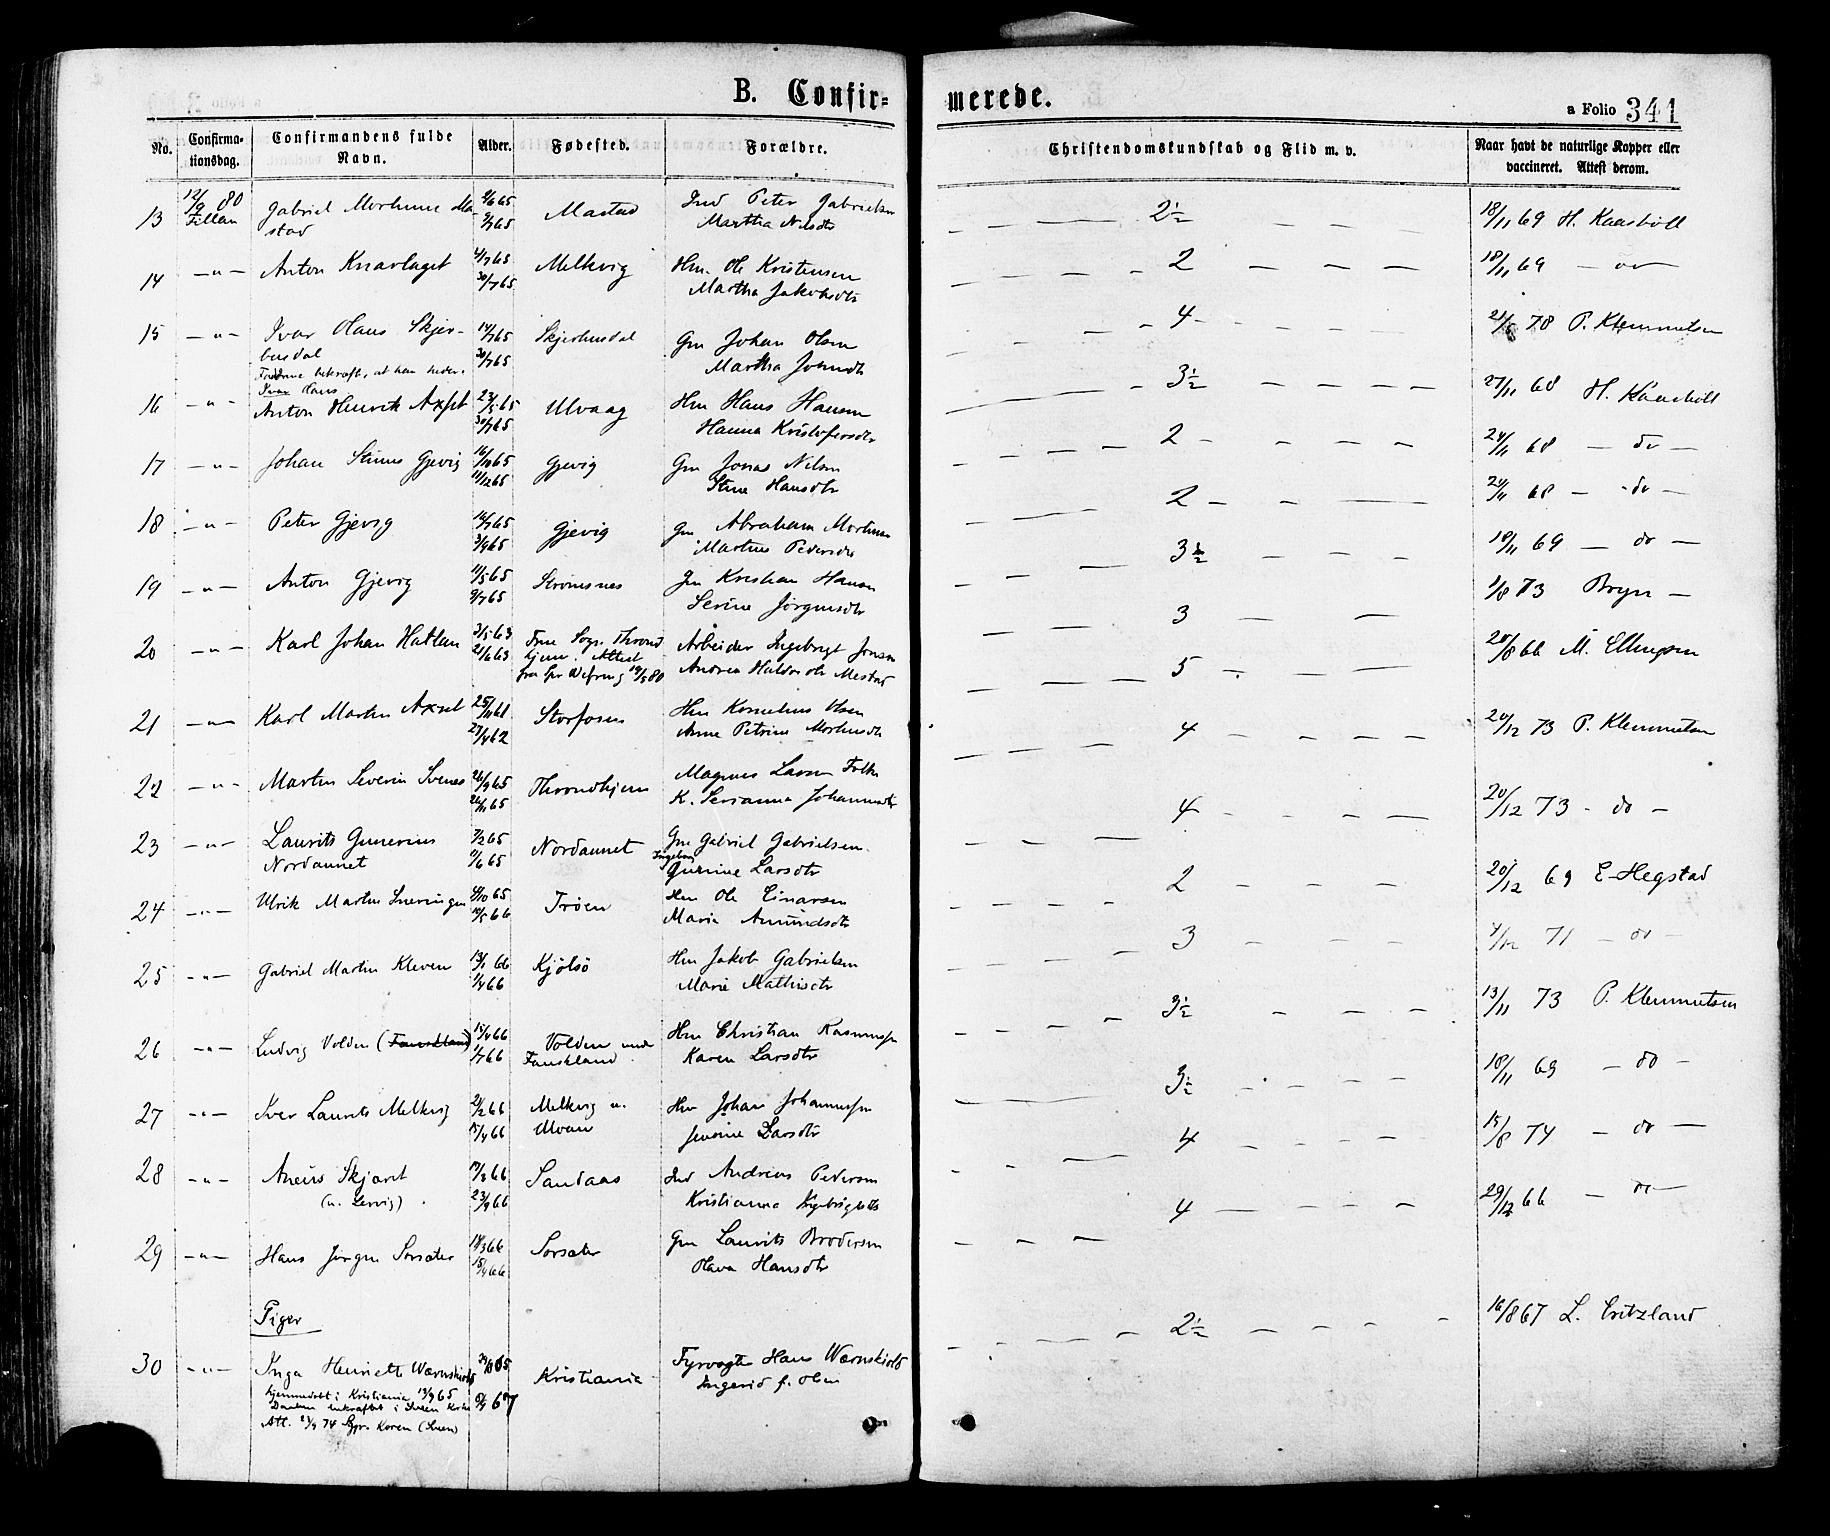 B. Confir=
merede.
a Folio 341
No. Confirma-tionsdag. Confirmandens fulde Navn. Alder. Fødested. Forældre. Christendomskundskab og Flid m. v. Naar havt de naturlige Kopper eller vaccineret. Attest derom.
13 12/9 80 Gabriel Martinus Ma- 2/6 65 Mastad Ind Peter Gabrielsen — 2½ 18/11 69 H. Kaasböll
Fillan stad 9/7 65 Martha Nilsdtr
14 -"- Anton Knarlaget 4/7 65 Melkvig Hm. Ole Kristensen — 2 — 18/11 69 — do —
30/7 65 Martha Jakobsdtr
15 -"- Ivar Hans Skjer- 14/7 65 Skjerbusdal Gm Johan Olsen — 4 — 78 P. Klemmetsen
busdal 30/7 65 Martha Johnsdtr
bekræft, at han heder
Ivar Hans
16 -"- Anton Henrik Axset 23/5 65 Ulvaag Hm Hans Hansen — 3½ — 27/11 68 H. Kaasböll
30/7 65 Hanna Kristofersdtr
17 -"- Johan Stinus Gjevig 16/10 65 Gjevig Gm Jonas Nilsen — 2 — 24/11 68 — do —
11/12 65 Stine Hansdtr
18 -"- Peter Gjevig 14/7 65 Gjevig Gm Abraham Mortensen — 2 — 24/11 68 — do —
3/9 65 Pedersdtr
19 -"- Anton Gjevig 11/5 65 Strømsnes Gm Kristian Hansen — 3½ — 18/11 69 — do —
9/7 65 Serine Jørgensdtr
20 -"- Karl Johan Hatlan 3/5 63 Frue Sogn. Thrond Arbeider Ingebrigt Jonsen — 3 — 1/8 73 Bryn —
21/6 63 hjem. Attest Andrea Haldorsdtr Mestad
fra Spr 19/5 80
21 -"- Karl Martin Axset 25/11 61 Storfosen Hm Kornelius Olsen — 5 — 20/8 66 M. Ellingsen
27/4 62 Anne Petrine Mortensdtr
22 -"- Martin Severin Svenes 26/9 65 Throndhjem Magnus Larsen Falk — 4 — 20/12 73 P. Klemmetsen
26/11 65 K. Serianna Johannesdtr
23 -"- Laurits Gunerius 7/2 65 Nordannet Gm Gabriel Gabrielsen — 4 — 20/12 73 - do -
Nordannet 11/6 65 Ingeborg
Gurine Larsdtr
24 -"- Ulrik Martin 4/10 65 Trøen Hm Ole Einarsen — 2 — 20/12 69 E Hegstad
10/5 66 Maria Amundsdtr
25 -"- Gabriel Martin Kleven 13/1 66 Kjölsö Hm Jakob Gabrielsen — 3 — 4/12 71 - do -
1/4 66 Marie Mathisdtr
26 -"- Ludvig Volden (Fanskland) 15/4 66 Volden under Hm Christian Rasmussen — 3½ — 13/11 73 P. Klemmetsen
1/7 66 Fanskland Karen Larsdtr
27 -"- Iver Laurits Melkvig 21/2 66 Melkvig u. Hm Johan Johannesen — 3½ — 18/11 69 — do -
15/4 66 Ulvan Larsdtr
28 -"- Aneus Skjaret 17/3 66 Sandaas Ind Andreas Pedersen — 4 — 15/8 74 — do —
(u. Lervig) 23/9 66 Kristianna Ingebrigtsdtr
29 -"- Hans Jörgen Sorsæter 18/3 66 Sorsæter Gm Laurits Brodersen — 4 — 29/12 66 — do —
15/4 66 Olava Hansdtr
Piger
30 -"- Inga Henriette Wærnskiold 65 Kristiania Fyrvogter Hans Wærnskiold — 2½ — 16/8 67 L. Critzland
hjemmedøbt i Kristiania 13/9 65 67 Ingerid f. Olsen
Daaben bekræftet i Kirke
Att. 21/9 74 Koren